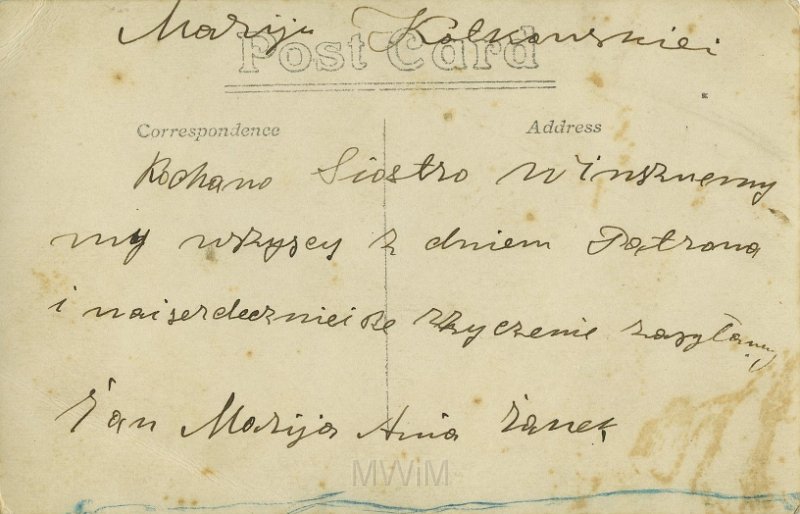 Mariju Kolkowskiei
Post Card
Correspondence
Address
Kochano Siostro Winsznemy
my wszyscy z dniem Patrona
i naiserdecznieise zzyczenie zasyłamy
Jan Marija Ania Janek
MWiM